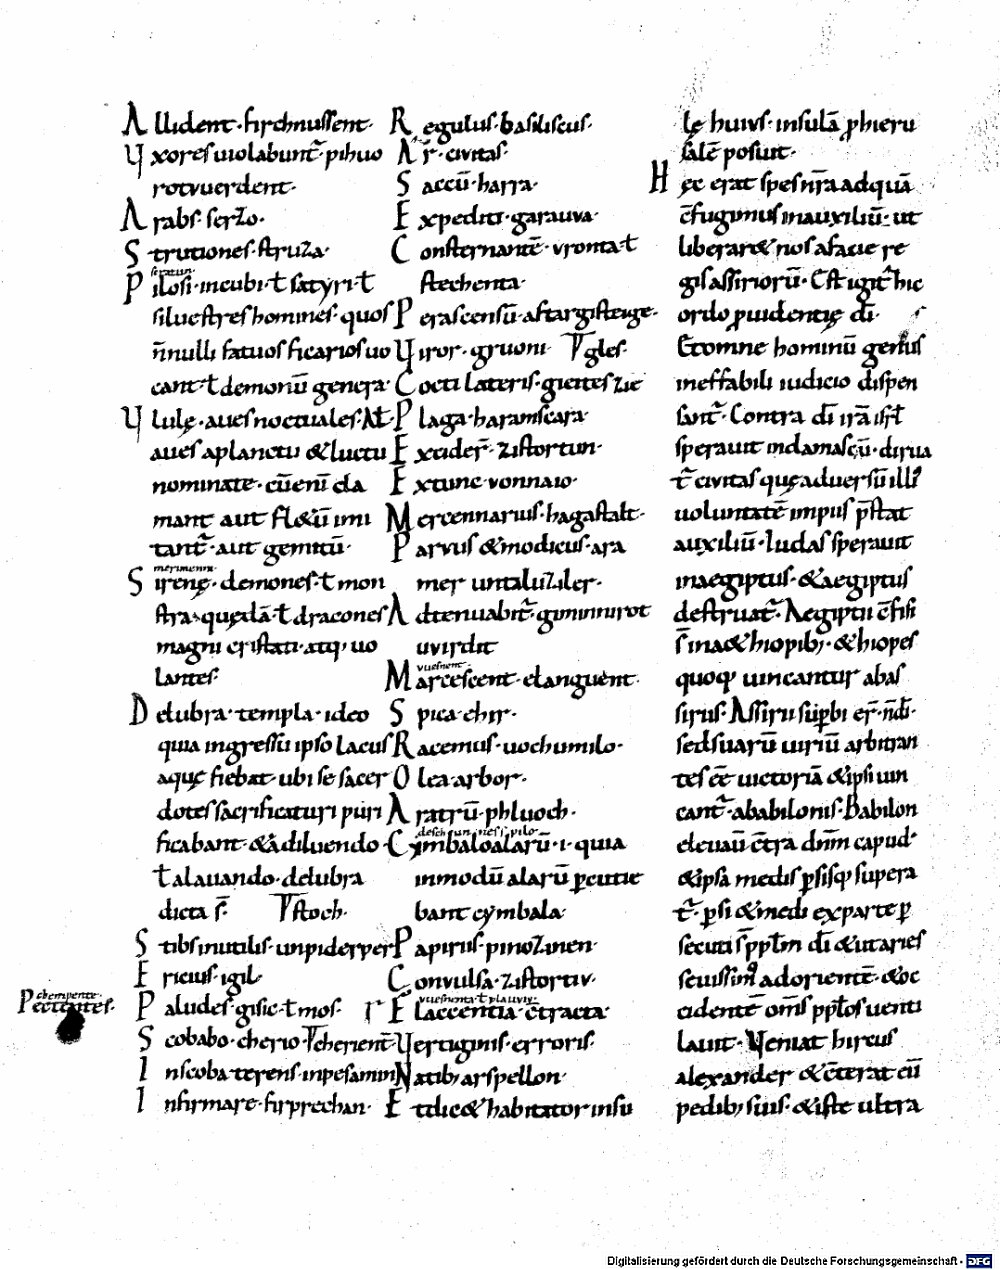 Allident· firchnussent·
Vxores uiolabunt̄· pihuo
rotvuerdent·
Arabs· serzo·
Strutiones· struza·
seratun·
Pilosi· incubi· ƚ satyri· ƚ
siluestres homines· quos
n̄nulli fatuos ficarios uo
cant· ƚ demoniū genera·
Vlulę· aues noctuales·
aues a planctu &luctu
nominate· cū eni cla
mant aut fl&ū imi
tant̄· aut gemitū·
merimenni·
Sirenę· demones· ƚ mon
stra· quędā· ƚ dracones
magni cristati· atq; uo
lantes·
Delubra· templa· ideo
quia ingressū ipso lacus
aquę fiebat· ubi se sacer
dotes sacrificaturi puri
ficabant· &a diluendo·
ƚ a lauando· delubra
dicta s̄· stoch·
Stibs inutilis· unpiderper
Ericius· igil·
chempente·
Pectentes·
Paludes· gisic· ƚ mos·
Scobabo· cherio· cherient
In scoba terens· inpesamin
Infirmare· firprechan·
Regulus· basiliscus·
Ar̄· civitas·
Saccū· harra·
Expediti· garauva·
Consternantē· vronta· ƚ
stechenta·
Per ascensū· aftar gisteige·
Viror· gruoni· gles·
Cocti lateris· gieites zie
Plaga· haramscara·
Excider̄· zistortun·
Extunc· vonnaio·
Mercennarius· hagastalt·
Parvus &modicus· ara
mer untaluziler·
Adtenuabit̄· giminnirot
uvirdit
vuesnent·
Marcescent· elanguent·
Spica· ehir·
Racemus· uochumilo·
Olea arbor·
Aratrū· phluoch·
Cymbalo alarū· i· quia
in modū alarū p̄cutie
bant cymbala·
Papirus· pinozinen·
Convulsa· zistortiv·
vuesnenta· ƚ plauviv·
Elaccentia· c̄tracta·
Vertiginis· erroris·
Natib; arspellon·
Et dic& habitator insu
lę huius· insulā p̄ hieru
salē posuit·
Hęc erat spes nr̄a ad quā
c̄fugimus in auxiliū· ut
liberar& nos a facie re
gis assiriorū· Est igit̄ hic
ordo p̄uidentię dī·
Et omne hominū genus
ineffabili iudicio dispen
sant̄· Contra dī irā isrƚ
sperauit in damascū· dirua
t̄ civitas quę aduersū illi9
voluntatē impiis p̄stat
auxiliū· Iudas sperauit
in aegiptus· &aegiptus
destruat̄· Aegiptii c̄fisi
s̄ in a&hiopib;· &hiopes
quoq; uincantur ab as
siriis· Assirii sup̄bi er̄· n̄ dī·
sed suarū uiriū arbitran
tes ēē uictoriā &ipsi uin
cant̄· a babilonis· Babilon
eleuatū c̄tra dn̄m caput
&ipsa medis p̄sisq; supera
t̄· p̄si &medi ex parte p̄
secuti s̄ pp̄lm dī &utaries
seuissim9 ad orientē· &oc
cidentē om̄s pp̄los uenti
lauit· Veniat hircus
alexander &c̄terat eū
pedib; suis· &iste ultra